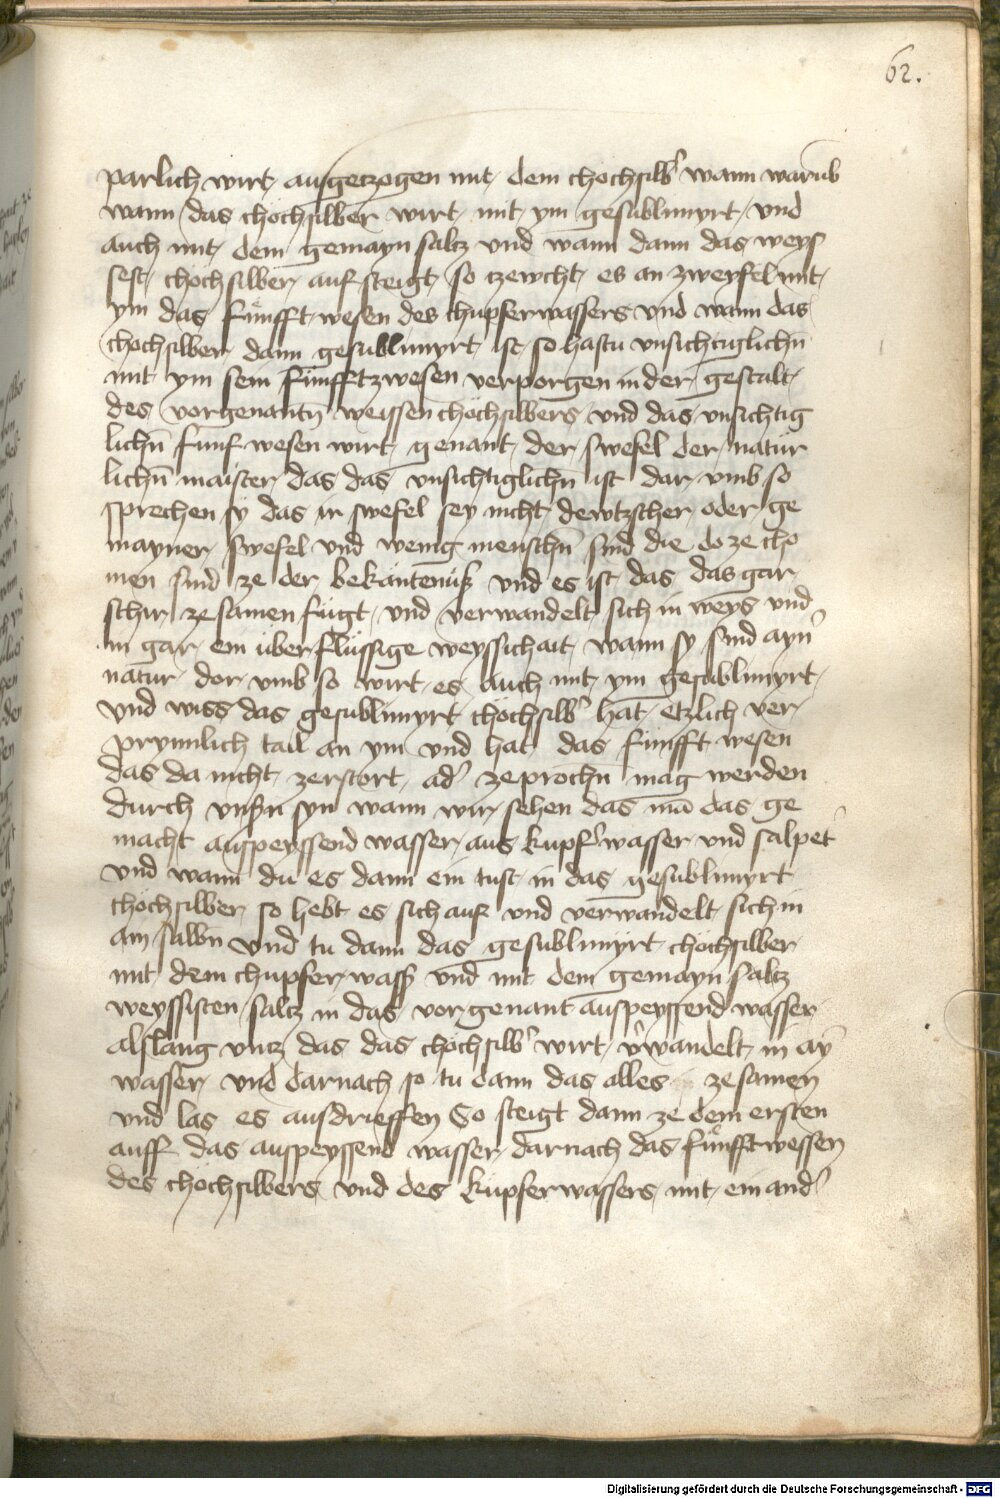 62.
parlich wirt ausgeczogen mit dem chochsilbˀ wann warūb
wann das chöchsilber wirt mit ym gesublimyrt vnd
auch mit dem gemayn saltz vnd wann dann das weys
sest chochsilber auf steigt so czewcht es an zweyfel mit
ym das fünfft wesen des chupferwassers vnd wann das
chochsilber dann gesublimyrt ist so hastu vnsichtiglichn̄
mit ym sein fünfftzwesen verporgen in der gestalt
des vorgenantn̄ weissen chöchsilbers vnd das vnsichtig
lichn̄ fünf wesen wirt genant der swefel der natür
lichn̄ maister das das vnsichtiglichn̄ ist dar vmb so
sprechen sy das ir swefel sey nicht dewtzscher oder ge
mayner swefel vnd wenig menschn̄ sind die do ze cho
men sind ze der bekäntenüß vnd es ist das das gar
schir ze samen fügt vnd verwandelt sich in weys vnd
in gar ein über flüssige weyssichait wann sy sind aynˀ
natur dor vmb so wirt es auch mit ym gesublimyrt
vnd wiss das gesublimyrt chöchsilbˀ hat etzlich ver
prymlich tail an ym vnd hat das fünfft wesen
das da nicht zerstort adˀ zeprochn̄ mag werden
durch vnsn̄ syn wann wir sehen das mā das ge
macht auspeyssend wasser aus kupfˀwasser vnd salpetˀ
vnd wann du es dann ein tust in das gesublimyrt
chöchsilber so hebt es sich auf vnd verwandelt sich in
ain salbn̄ vnd tu dann das gesublimyrt chöchsilber
mit dem chupfer wassˀ vnd mit dem gemayn saltz
weyssisten saltz in das vorgenant auspeyssend wasser
alslang vntz das das chöchsilbˀ wirt vˀwandelt in ayˉ
wasser vnd darnach so tu dann das alles ze samen
vnd las es ausdrieffen So steigt dann ze dem ersten
auff das auspeyssend wasser darnach das fünfftwessen
des chöchsilbers vnd des küpferwassers mit ein andˀ
Digitalisierung gefördert durch die Deutsche Forschungsgemeinschaft - DFG